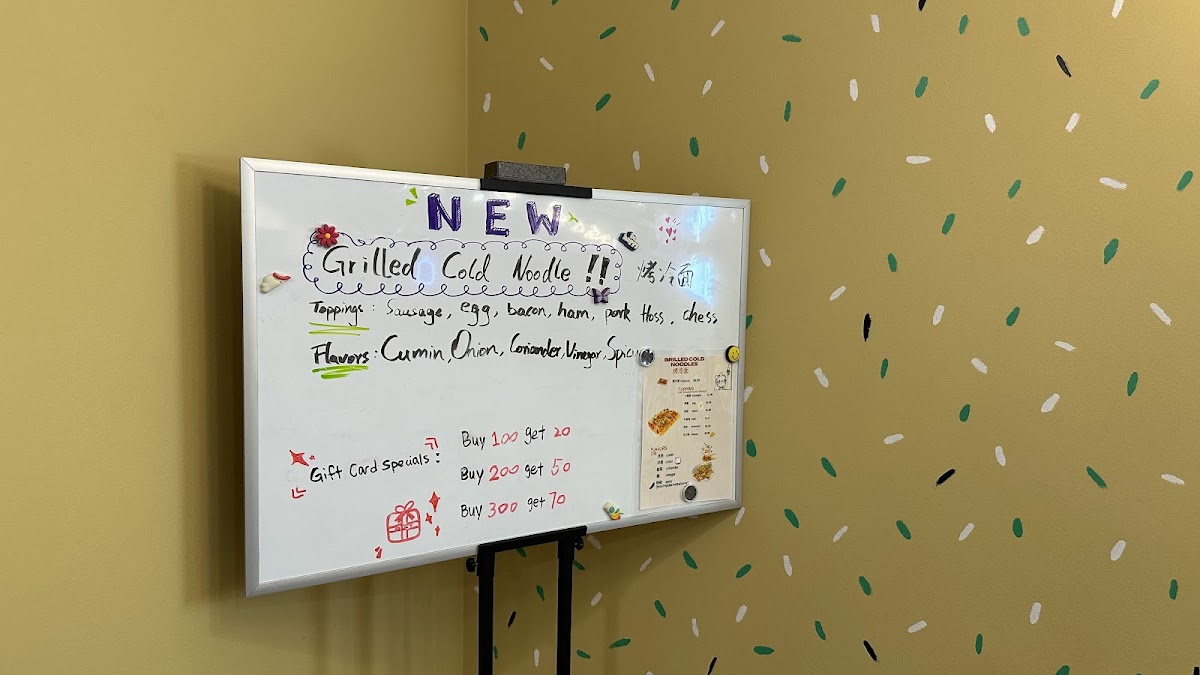 NEW
Grilled Cold Noodle !! 烤冷面
Toppings : Sausage, egg, bacon, ham, pork floss, chess
Flavors : Cumin, Onion, Coriander, Vinegar, Spicy
GRILLED COLD
NOODLES
烤冷面
Gift Card Specials :
Buy 100 get 20
Buy 200 get 50
Buy 300 get 70